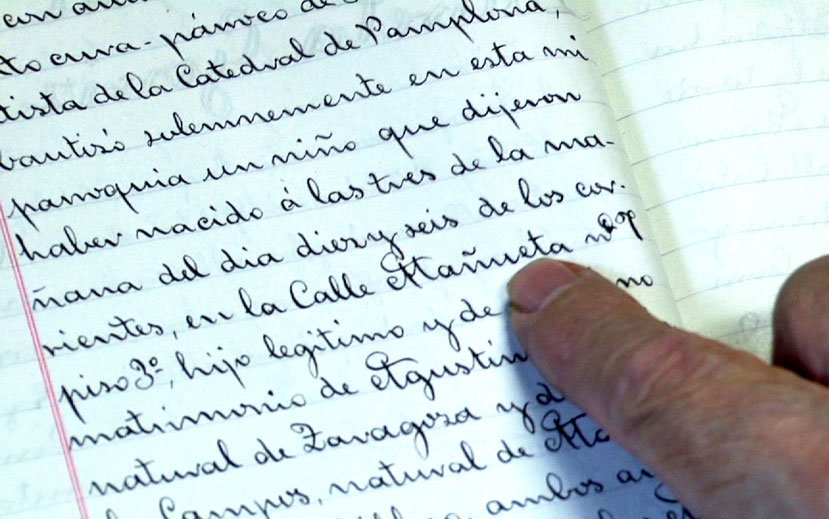 to cura-párroco de
tista de la Catedral de Pamplona,
bautizó solemnemente en esta mi
parroquia un niño que dijeron
haber nacido á las tres de la ma-
ñana del dia diez y seis de los cor-
rientes, en la Calle Mañueta nº
piso 3º, hijo legitimo y de no
matrimonio de Agustin
natural de Zaragoza y d
Campos, natural de
ambos